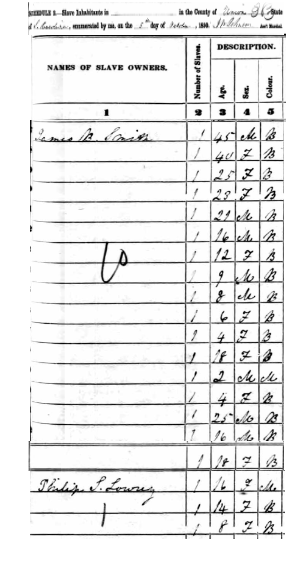 SCHEDULE 2.—Slave Inhabitants in in the County of Union State
of S. Carolina, enumerated by me, on the 5th day of October, 1850. Ass't Marshal.
NAMES OF SLAVE OWNERS. Number of Slaves. DESCRIPTION.
Age. Sex. Colour.
1 2 3 4 5
James B. Smith 1 45 M B
1 40 F B
1 25 F B
1 23 F B
1 21 M B
1 16 M B
1 12 F B
1 9 M B
1 8 M B
1 6 F B
1 4 F B
1 18 F B
1 2 M M
1 4 F B
1 25 M B
1 16 M B
1 18 F B
Philip S. Lowrey 1 16 F M
1 14 F B
1 8 F B